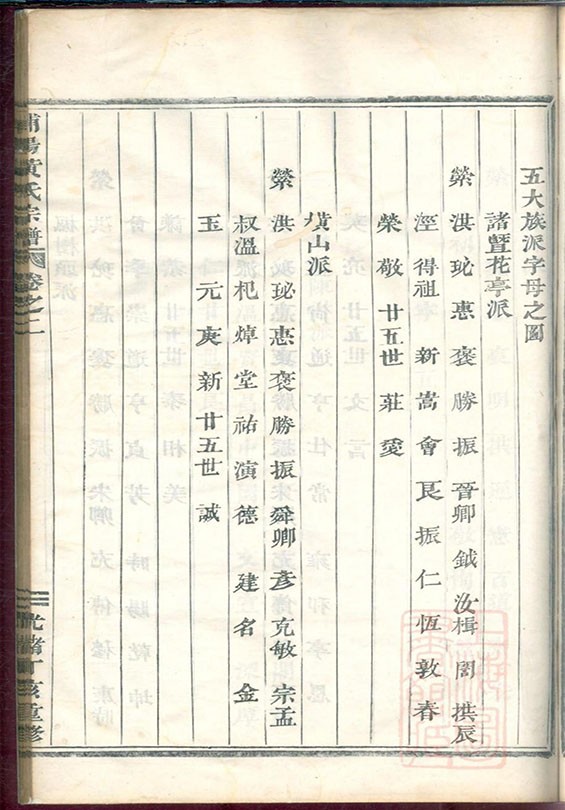 五大族派字母之圖
諸暨花亭派
榮洪玭惠褒勝振晉卿鉞汝楫誾拱辰
涇得祖新嵩會艮振仁恆敦春
榮敬廿五世莊爰
橫山派
榮洪玭惠褒勝振舜卿彥克敏宗孟
叔溫杞焯堂祐演德建名金
玉元庚新廿五世誠
浦陽黃氏宗譜
卷之二
光緒丁亥重修